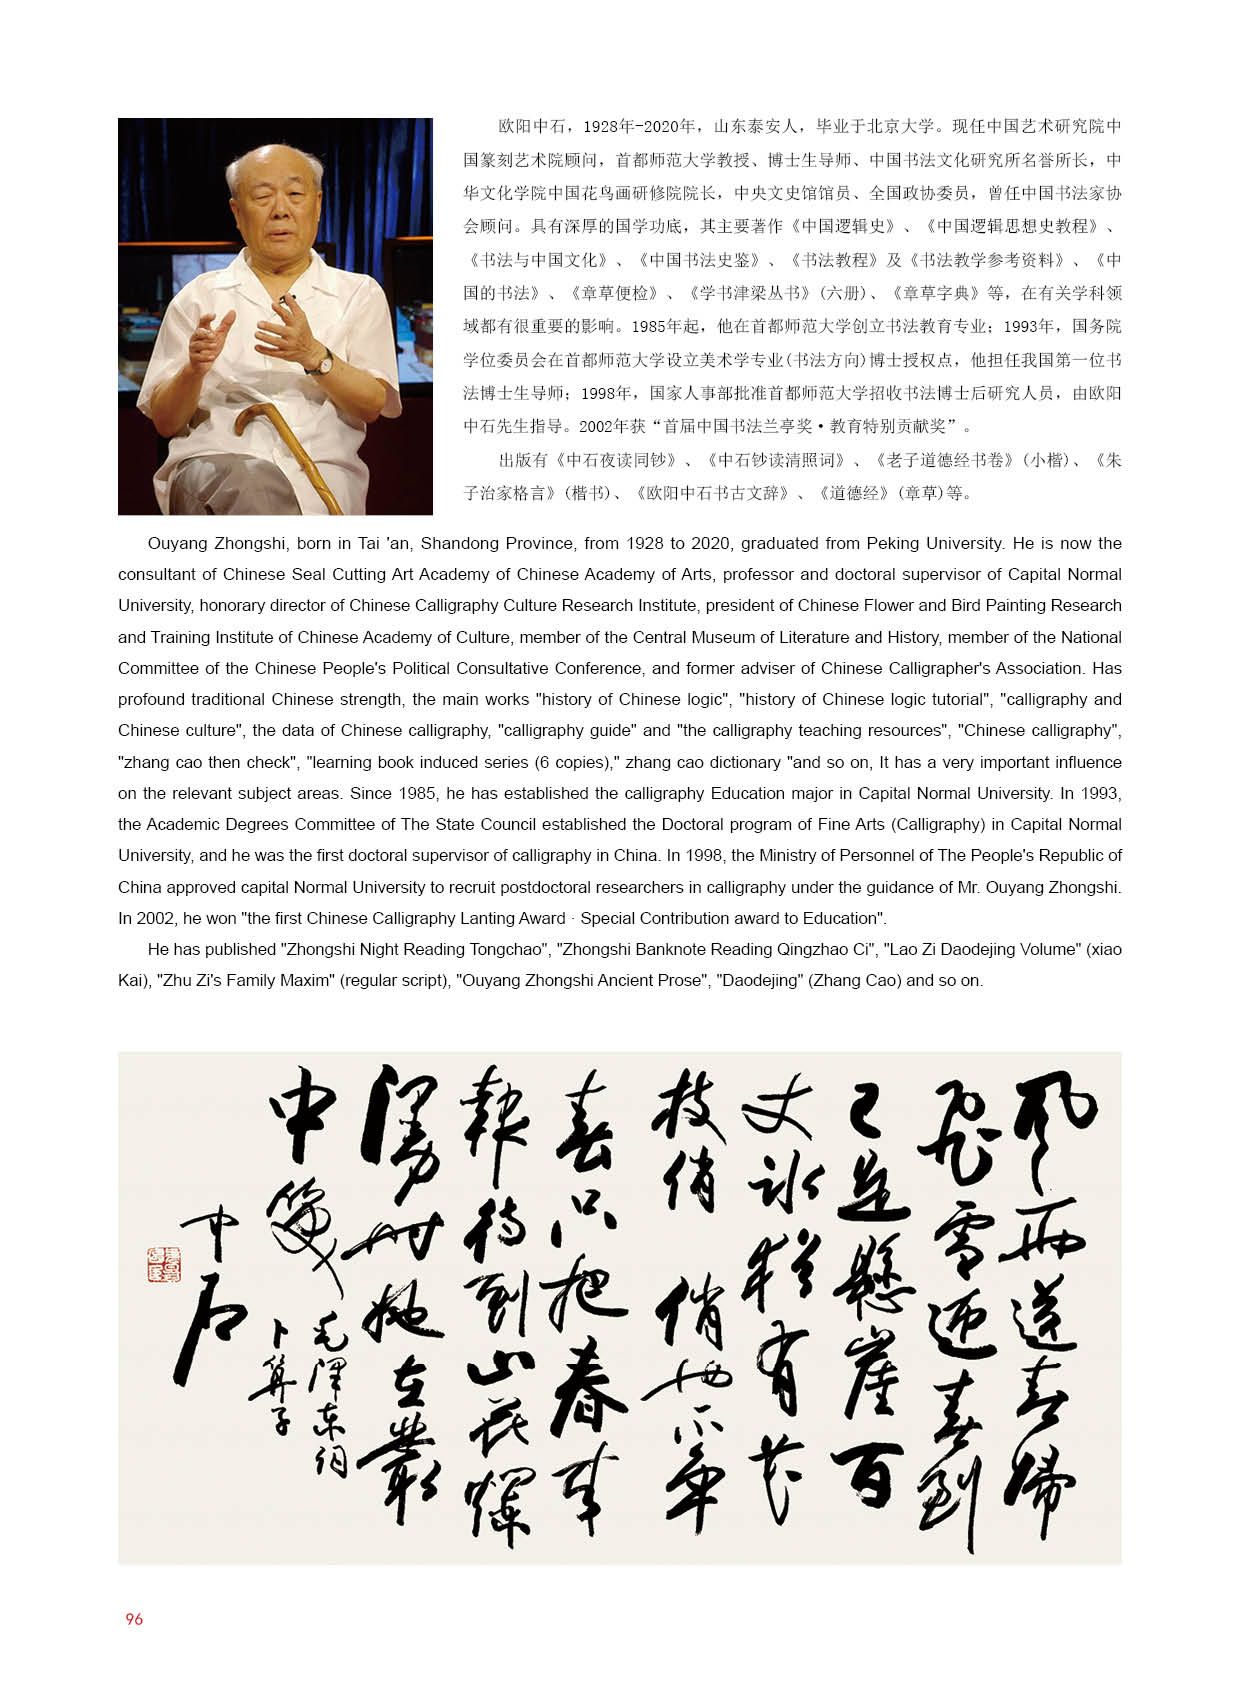 欧阳中石，1928年-2020年，山东泰安人，毕业于北京大学。现任中国艺术研究院中
国篆刻艺术院顾问，首都师范大学教授、博士生导师、中国书法文化研究所名誉所长，中
华文化学院中国花鸟画研修院院长，中央文史馆馆员、全国政协委员，曾任中国书法家协
会顾问。具有深厚的国学功底，其主要著作《中国逻辑史》、《中国逻辑思想史教程》、
《书法与中国文化》、《中国书法史鉴》、《书法教程》及《书法教学参考资料》、《中
国的书法》、《章草便检》、《学书津梁丛书》(六册)、《章草字典》等，在有关学科领
域都有很重要的影响。1985年起，他在首都师范大学创立书法教育专业；1993年，国务院
学位委员会在首都师范大学设立美术学专业(书法方向)博士授权点，他担任我国第一位书
法博士生导师；1998年，国家人事部批准首都师范大学招收书法博士后研究人员，由欧阳
中石先生指导。2002年获“首届中国书法兰亭奖·教育特别贡献奖”。
出版有《中石夜读同钞》、《中石钞读清照词》、《老子道德经书卷》(小楷)、《朱
子治家格言》(楷书)、《欧阳中石书古文辞》、《道德经》(章草)等。
Ouyang Zhongshi, born in Tai 'an, Shandong Province, from 1928 to 2020, graduated from Peking University. He is now the
consultant of Chinese Seal Cutting Art Academy of Chinese Academy of Arts, professor and doctoral supervisor of Capital Normal
University, honorary director of Chinese Calligraphy Culture Research Institute, president of Chinese Flower and Bird Painting Research
and Training Institute of Chinese Academy of Culture, member of the Central Museum of Literature and History, member of the National
Committee of the Chinese People's Political Consultative Conference, and former adviser of Chinese Calligrapher's Association. Has
profound traditional Chinese strength, the main works "history of Chinese logic", "history of Chinese logic tutorial", "calligraphy and
Chinese culture", the data of Chinese calligraphy, "calligraphy guide" and "the calligraphy teaching resources", "Chinese calligraphy",
"zhang cao then check", "learning book induced series (6 copies)," zhang cao dictionary "and so on, It has a very important influence
on the relevant subject areas. Since 1985, he has established the calligraphy Education major in Capital Normal University. In 1993,
the Academic Degrees Committee of The State Council established the Doctoral program of Fine Arts (Calligraphy) in Capital Normal
University, and he was the first doctoral supervisor of calligraphy in China. In 1998, the Ministry of Personnel of The People's Republic of
China approved capital Normal University to recruit postdoctoral researchers in calligraphy under the guidance of Mr. Ouyang Zhongshi.
In 2002, he won "the first Chinese Calligraphy Lanting Award · Special Contribution award to Education".
He has published "Zhongshi Night Reading Tongchao", "Zhongshi Banknote Reading Qingzhao Ci", "Lao Zi Daodejing Volume" (xiao
Kai), "Zhu Zi's Family Maxim" (regular script), "Ouyang Zhongshi Ancient Prose", "Daodejing" (Zhang Cao) and so on.
風雨送春歸
飛雪迎春到
已是懸崖百
丈冰猶有花
枝俏 俏也不争
春只把春来
報待到山花爛
漫時她在叢
中笑
毛澤东词
卜算子
中石
96